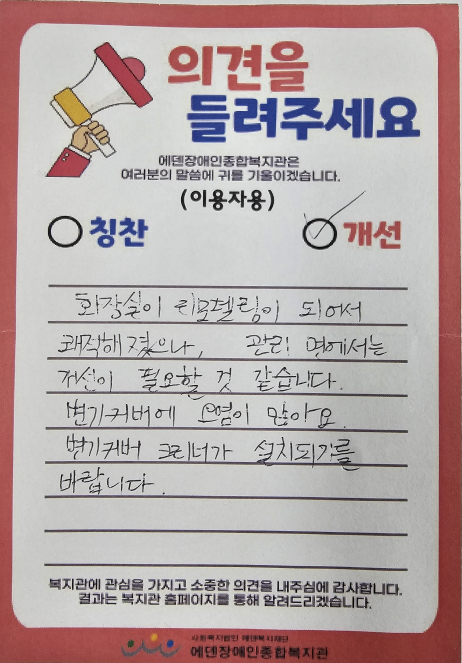 의견을
들려주세요
에덴장애인종합복지관은
여러분의 말씀에 귀를 기울이겠습니다.
(이용자용)
칭찬 개선
화장실이 리모델링이 되어서
쾌적해졌으나, 관리 면에서는
개선이 필요할 것 같습니다.
변기커버에 오염이 많아요.
변기커버 크리너가 설치되기를
바랍니다.
복지관에 관심을 가지고 소중한 의견을 내주심에 감사합니다.
결과는 복지관 홈페이지를 통해 알려드리겠습니다.
사회복지법인 에덴복지재단
에덴장애인종합복지관